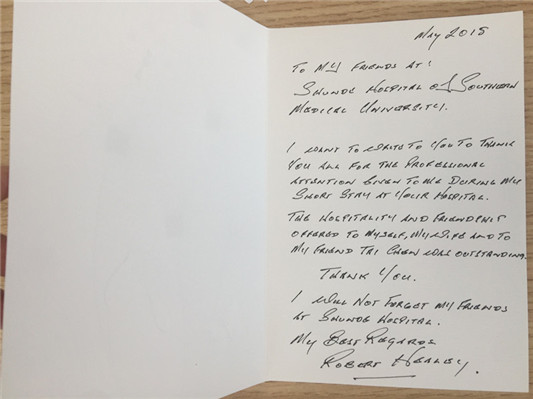 May 2015
TO MY FRIENDS AT:
SHUNDE HOSPITAL OF SOUTHERN
MEDICAL UNIVERSITY.
I WANT TO WRITE TO YOU TO THANK
YOU ALL FOR THE PROFESSIONAL
ATTENTION GIVEN TO ME DURING MY
SHORT STAY AT YOUR HOSPITAL.
THE HOSPITALITY AND FRIENDSHIP
OFFERED TO MYSELF, MY WIFE AND TO
MY FRIEND TAI CHEN WAS OUTSTANDING.
THANK YOU.
I WILL NOT FORGET MY FRIENDS
AT SHUNDE HOSPITAL.
MY BEST REGARDS
ROBERT HEALEY.